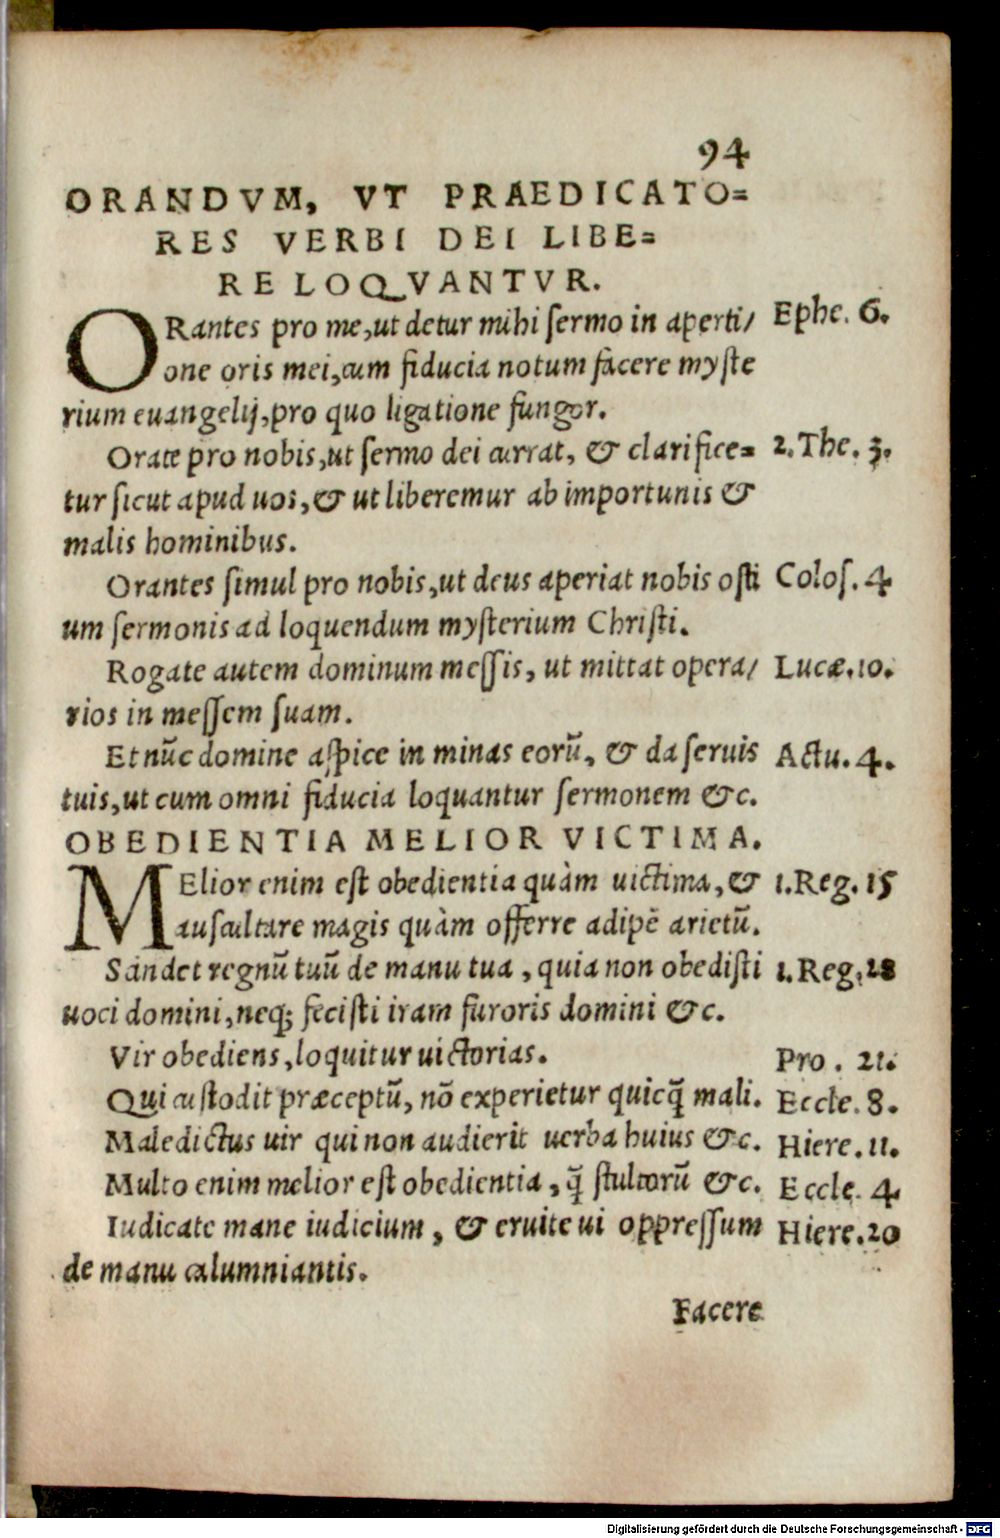 94
ORANDVM, VT PRAEDICATO=
RES VERBI DEI LIBE=
RE LOQVANTVR.
ORantes pro me, ut detur mihi sermo in aperti/ Ephe. 6.
one oris mei, cum fiducia notum facere myste
rium euangelij, pro quo ligatione fungor.
Orate pro nobis, ut sermo dei currat, & clarifice= 2. The. 3.
tur sicut apud uos, & ut liberemur ab importunis &
malis hominibus.
Orantes simul pro nobis, ut deus aperiat nobis osti Colos. 4
um sermonis ad loquendum mysterium Christi.
Rogate autem dominum messis, ut mittat opera/ Lucæ. 10.
rios in messem suam.
Et nũc domine aspice in minas eorũ, & da seruis Actu. 4.
tuis, ut cum omni fiducia loquantur sermonem &c.
OBEDIENTIA MELIOR VICTIMA.
MElior enim est obedientia quàm uictima, & 1. Reg. 15
auscultare magis quàm offerre adipẽ arietũ.
Sandet regnũ tuũ de manu tua, quia non obedisti 1. Reg. 28
uoci domini, neq; fecisti iram furoris domini &c.
Vir obediens, loquitur uictorias. Pro. 21.
Qui custodit præceptũ, nõ experietur quicq̃ mali. Eccle. 8.
Maledictus uir qui non audierit uerba huius &c. Hiere. 11.
Multo enim melior est obedientia, q̃ stultorũ &c. Eccle. 4
Iudicate mane iudicium, & eruite ui oppressum Hiere. 20
de manu calumniantis.
Facere
Digitalisierung gefördert durch die Deutsche Forschungsgemeinschaft - DFG